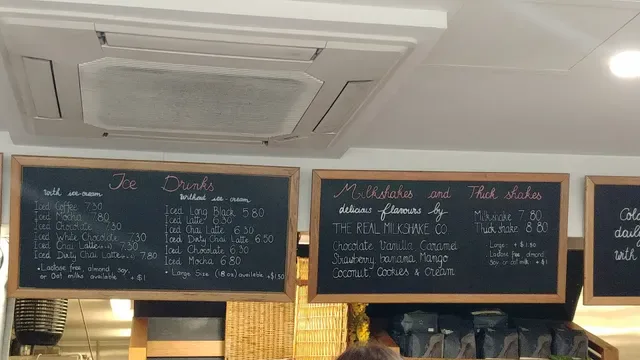 Ice Drinks
with ice-cream
Iced Coffee 7.30
Iced Mocha 7.80
Iced Chocolate 7.30
Iced White Chocolate 7.30
Iced Chai Latte 7.30
Iced Dirty Chai Latte 7.80
• Lactose free, almond soy
or Oat milk available + $1
without ice-cream
Iced Long Black 5.80
Iced Latte 6.30
Iced Chai Latte 6.30
Iced Dirty Chai Latte 6.50
Iced Chocolate 6.30
Iced Mocha 6.80
• Large Size (18oz) available +$1.50
Milkshakes and Thick shakes
delicious flavours by
THE REAL MILKSHAKE CO.
Chocolate Vanilla Caramel
Strawberry banana Mango
Coconut Cookies & Cream
Milkshake 7.80
Thick shake 8.80
Large: + $1.50
Lactose free, almond
Soy or oat milk: + $1
Col
dail
with